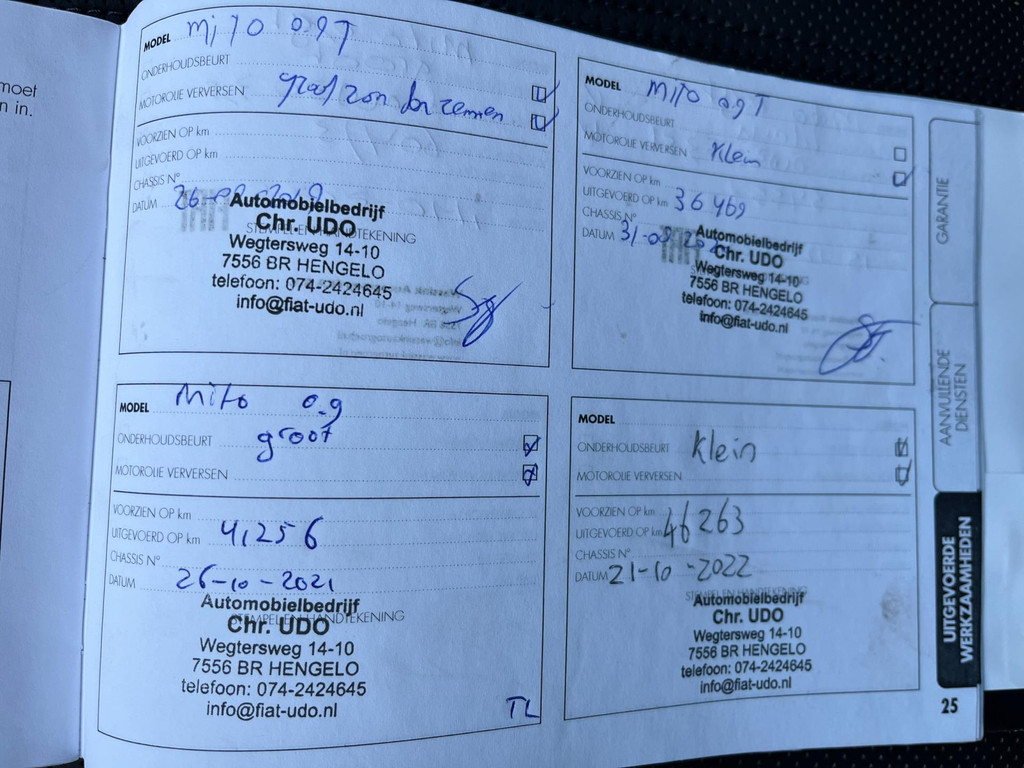 moet
n in.
MODEL Mito 0.9 T
ONDERHOUDSBEURT
MOTOROLIE VERVERSEN groot zonder riemen
VOORZIEN OP km
UITGEVOERD OP km
CHASSIS N°
DATUM 26-
STEMPEL EN HANDTEKENING
Automobielbedrijf
Chr. UDO
Wegtersweg 14-10
7556 BR HENGELO
telefoon: 074-2424645
info@fiat-udo.nl
MODEL Mito 0.9 T
ONDERHOUDSBEURT
MOTOROLIE VERVERSEN Klein
VOORZIEN OP km
UITGEVOERD OP km 36469
CHASSIS N°
DATUM 31-08
Automobielbedrijf
Chr. UDO
Wegtersweg 14-10
7556 BR HENGELO
telefoon: 074-2424645
info@fiat-udo.nl
MODEL Mito 0.9
ONDERHOUDSBEURT groot
MOTOROLIE VERVERSEN
VOORZIEN OP km
UITGEVOERD OP km 41256
CHASSIS N°
DATUM 26-10-2021
STEMPEL EN HANDTEKENING
Automobielbedrijf
Chr. UDO
Wegtersweg 14-10
7556 BR HENGELO
telefoon: 074-2424645
info@fiat-udo.nl
TL
MODEL
ONDERHOUDSBEURT Klein
MOTOROLIE VERVERSEN
VOORZIEN OP km
UITGEVOERD OP km 46263
CHASSIS N°
DATUM 21-10-2022
STEMPEL EN HANDTEKENING
Automobielbedrijf
Chr. UDO
Wegtersweg 14-10
7556 BR HENGELO
telefoon: 074-2424645
info@fiat-udo.nl
GARANTIE
AANVULLENDE
DIENSTEN
UITGEVOERDE
WERKZAAMHEDEN
25